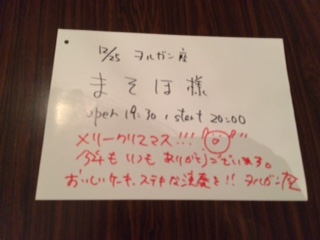 12/25 ヲルガン座
まそほ様
open 19:30, start 20:00
メリークリスマス!!!
今年もいつもありがとうございます。
おいしいケーキ、ステキな演奏を!! ヲルガン座